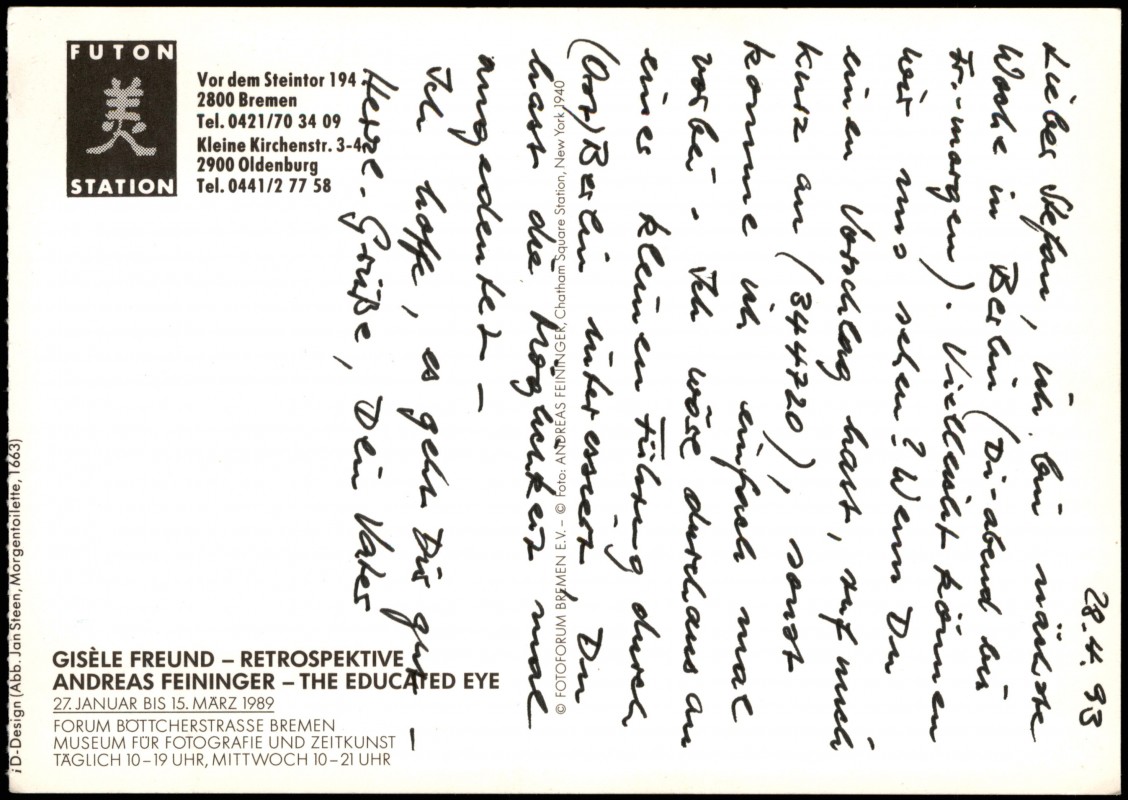 FUTON
美
STATION
Vor dem Steintor 194
2800 Bremen
Tel. 0421/70 34 09
Kleine Kirchenstr. 3-4
2900 Oldenburg
Tel. 0441/2 77 58
28.4.93
Lieber Stefan, ich bin nächste
Woche in Berlin (Di-abend bis
Fr.-morgen). Vielleicht können
wir uns sehen? Wenn Du
einen Vorschlag hast, ruf mich
kurz an (344720), sonst
komme ich einfach mal
vorbei. Ich wäre durchaus an
einer kleinen Führung durch
(Ost)Berlin interessiert. Du
hast die Möglichkeit mal
angedeutet –
Ich hoffe, es geht Dir gut –
Herzl. Grüße, Dein Vater
© FOTOFORUM BREMEN E.V. – © Foto: ANDREAS FEININGER, Chatham Square Station, New York 1940
GISÈLE FREUND – RETROSPEKTIVE
ANDREAS FEININGER – THE EDUCATED EYE
27. JANUAR BIS 15. MÄRZ 1989
FORUM BÖTTCHERSTRASSE BREMEN
MUSEUM FÜR FOTOGRAFIE UND ZEITKUNST
TÄGLICH 10–19 UHR, MITTWOCH 10–21 UHR
iD-Design (Abb. Jan Steen, Morgentoilette, 1663)